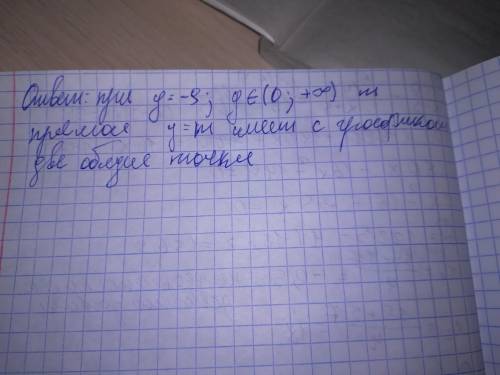 Ответ: при y = -9; y ∈ (0; +∞) m
прямая y = m имеет с графиком
две общие точки